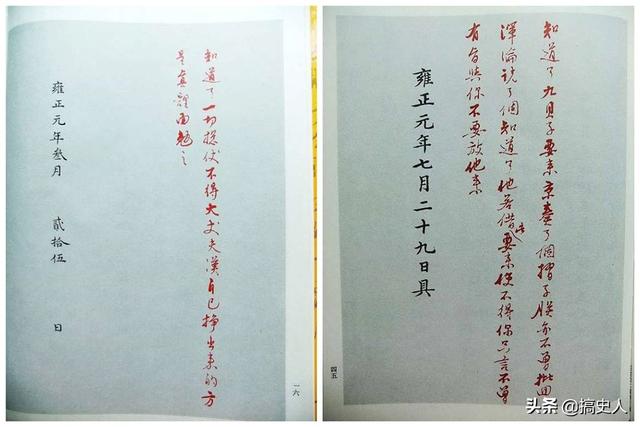 知道了一切總仗不得大丈夫漢自己掙出來的方
是真體面勉之
雍正元年叁月 貳拾伍 日
一六
知道了九貝子要來京奏了個摺子朕亦不曾批回
渾淪說了個知道了他若借此要來使不得你只言不曾
有旨與你不要放他來
雍正元年七月二十九日具
四五
头条 @搞史人